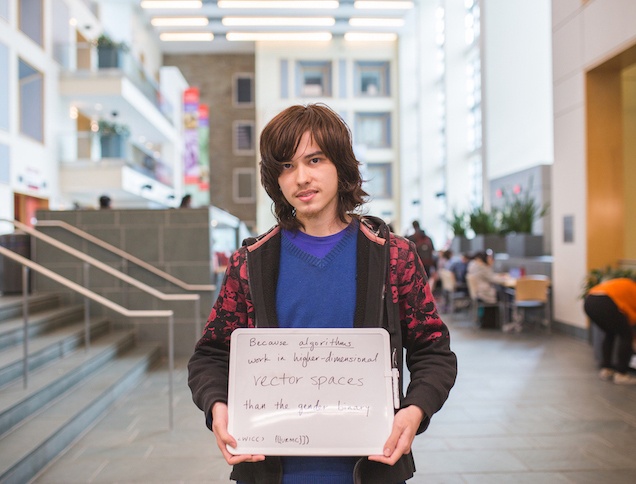 Because algorithms
work in higher-dimensional
vector spaces
than the gender binary